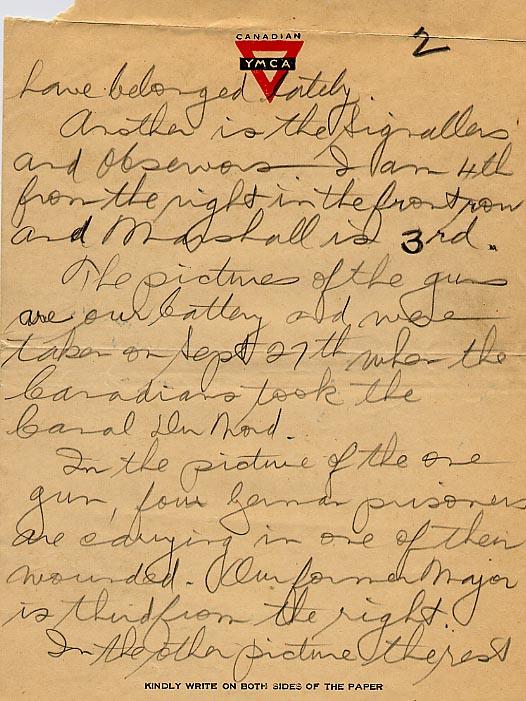 CANADIAN
YMCA
2
have belonged lately.
Another is the Signallers
and Observors I am 4th
from the right in the front row
and Marshall is 3rd.
The pictures of the guns
are our battery and were
taken on Sept 27th when the
Canadians took the
Canal Du Nord.
In the picture of the one
gun, four German prisoners
are carrying in one of their
wounded. Our former Major
is third from the right.
In the other picture the rest
KINDLY WRITE ON BOTH SIDES OF THE PAPER